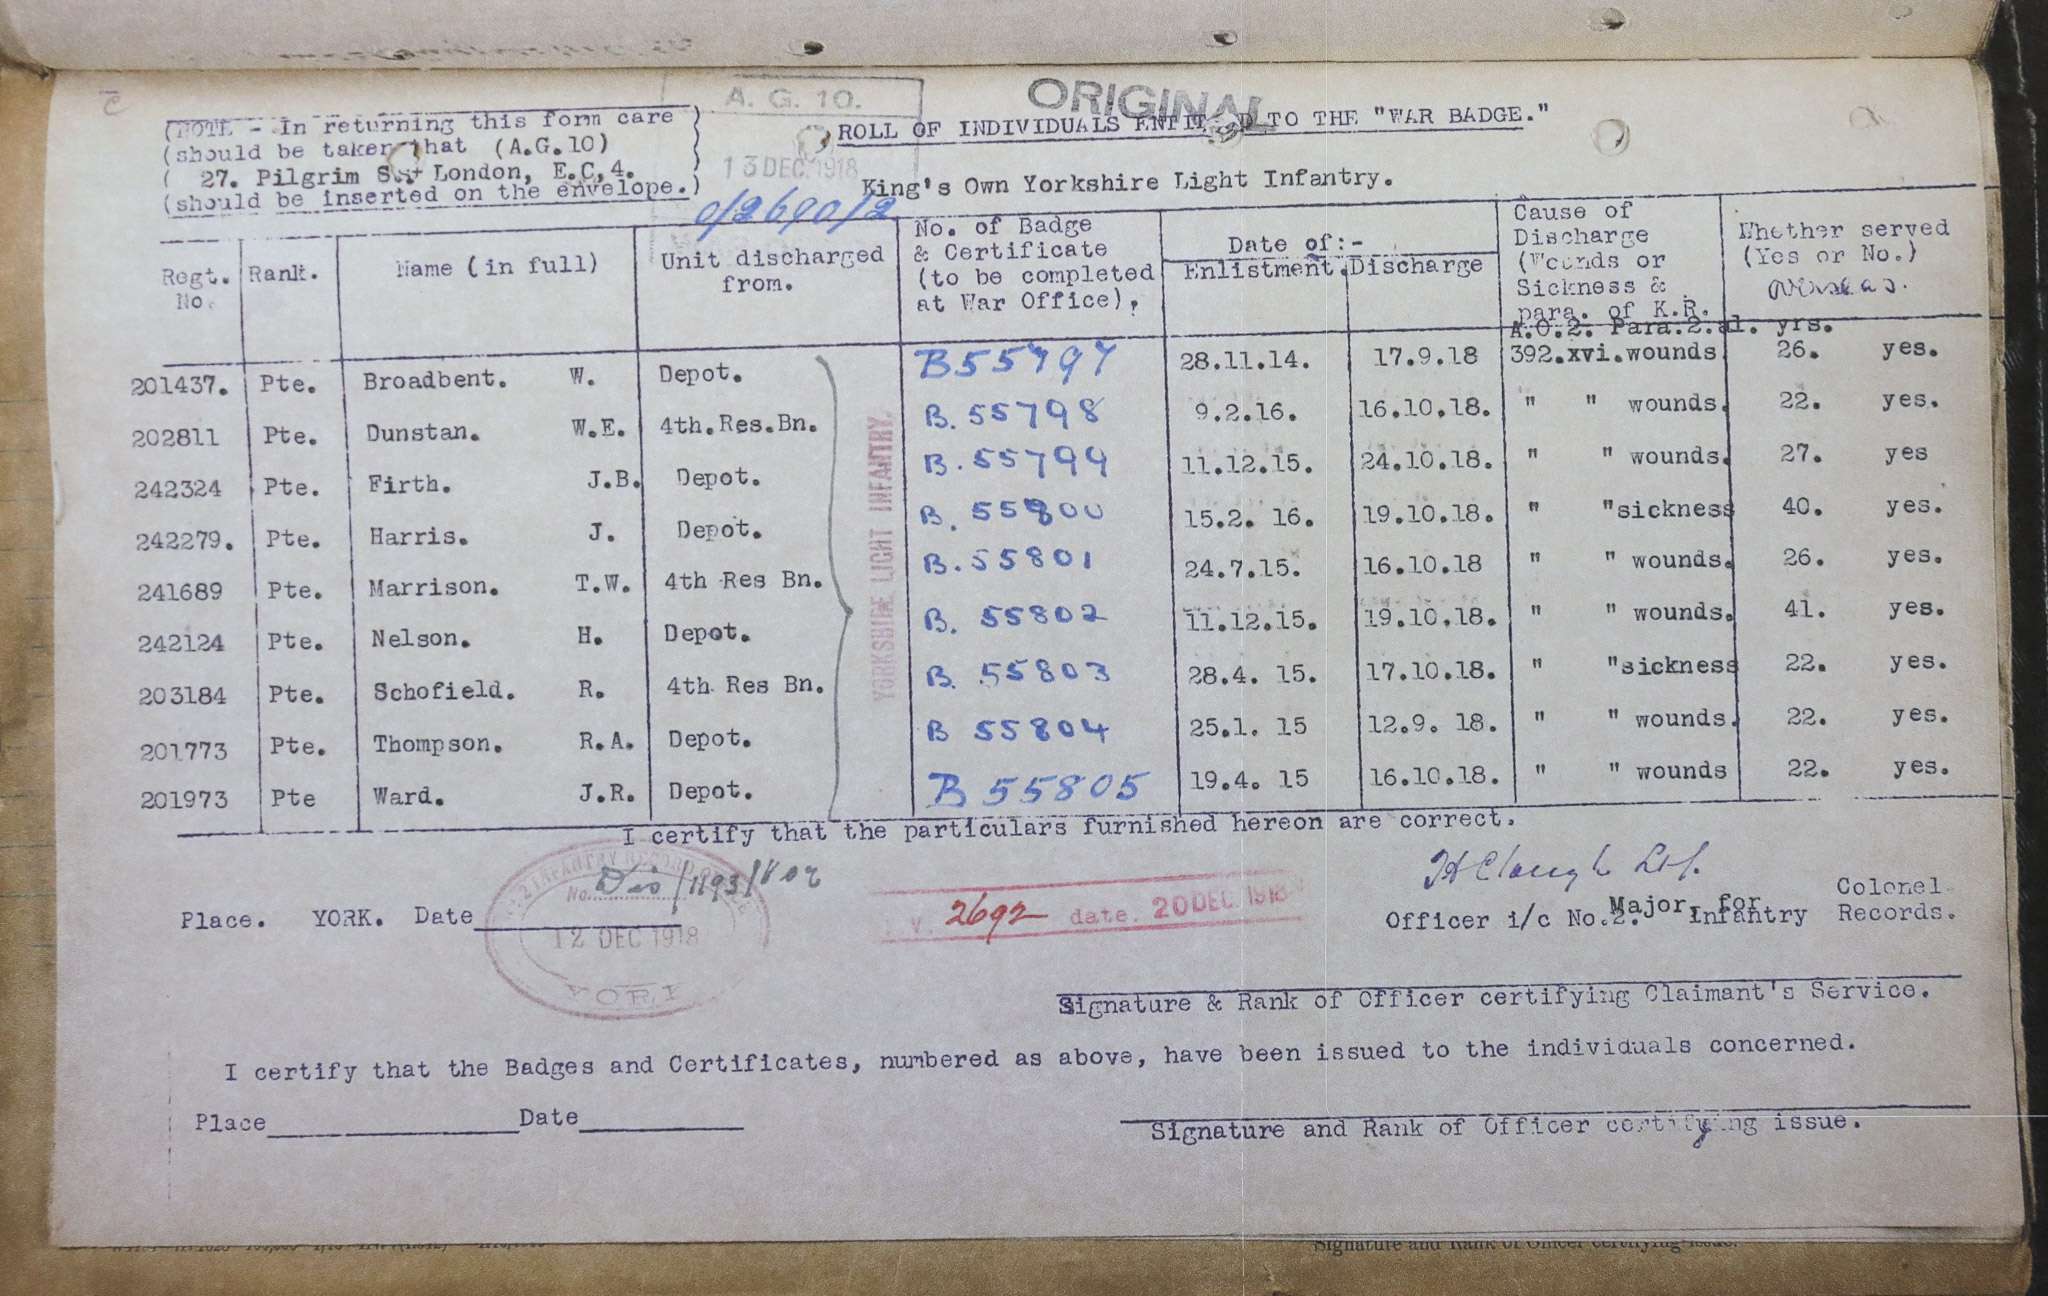 A. G. 10.
ORIGINAL
(NOTE - In returning this form care
(should be taken that (A.G.10)
( 27. Pilgrim St London, E.C,4.
(should be inserted on the envelope.)
13 DEC 1918
ROLL OF INDIVIDUALS ENTITLED TO THE "WAR BADGE."
King's Own Yorkshire Light Infantry.
0/2690/2
Regt. No. Rank. Name (in full) Unit discharged from. No. of Badge & Certificate (to be completed at War Office). Date of:- Enlistment. Discharge Cause of Discharge (Wounds or Sickness & para. of K.R. Whether served (Yes or No.) overseas.
A.O.2. Para.2.a1. yrs.
201437. Pte. Broadbent. W. Depot. B55797 28.11.14. 17.9.18 392.xvi.wounds 26. yes.
202811 Pte. Dunstan. W.E. 4th.Res.Bn. B. 55798 9.2.16. 16.10.18. " " wounds. 22. yes.
242324 Pte. Firth. J.B. Depot. B. 55799 11.12.15. 24.10.18. " " wounds. 27. yes
242279. Pte. Harris. J. Depot. B. 55800 15.2. 16. 19.10.18. " "sickness 40. yes.
241689 Pte. Marrison. T.W. 4th Res Bn. B. 55801 24.7.15. 16.10.18 " " wounds. 26. yes.
242124 Pte. Nelson. H. Depot. B. 55802 11.12.15. 19.10.18. " " wounds. 41. yes.
203184 Pte. Schofield. R. 4th Res Bn. B. 55803 28.4. 15. 17.10.18. " "sickness 22. yes.
201773 Pte. Thompson. R.A. Depot. B 55804 25.1. 15 12.9. 18. " " wounds. 22. yes.
201973 Pte Ward. J.R. Depot. B 55805 19.4. 15 16.10.18. " " wounds 22. yes.
YORKSHIRE LIGHT INFANTRY.
I certify that the particulars furnished hereon are correct.
INFANTRY RECORD
No. Dis/1193/
12 DEC 1918
YORK
V. 2692 date. 20 DEC 1918
Place. YORK. Date
H Clough
Major for Colonel
Officer i/c No.2. Infantry Records.
Signature & Rank of Officer certifying Claimant's Service.
I certify that the Badges and Certificates, numbered as above, have been issued to the individuals concerned.
Place Date
Signature and Rank of Officer certifying issue.
Signature and Rank of Officer certifying issue.